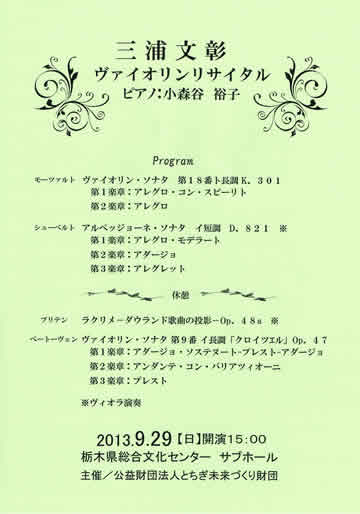 三浦文彰
ヴァイオリンリサイタル
ピアノ;小森谷 裕子
Program
モーツァルト ヴァイオリン・ソナタ 第18番ト長調K.301
第1楽章:アレグロ・コン・スピーリト
第2楽章:アレグロ
シューベルト アルペッジョーネ・ソナタ イ短調 D.821 ※
第1楽章:アレグロ・モデラート
第2楽章:アダージョ
第3楽章:アレグレット
休憩
ブリテン ラクリメーダウランド歌曲の投影-Op.48a ※
ベートーヴェン ヴァイオリン・ソナタ 第9番 イ長調「クロイツエル」Op.47
第1楽章:アダージョ・ソステヌート-プレスト-アダージョ
第2楽章:アンダンテ・コン・バリアツィオーニ
第3楽章:プレスト
※ヴィオラ演奏
2013.9.29【日】開演15:00
栃木県総合文化センター サブホール
主催/公益財団法人とちぎ未来づくり財団